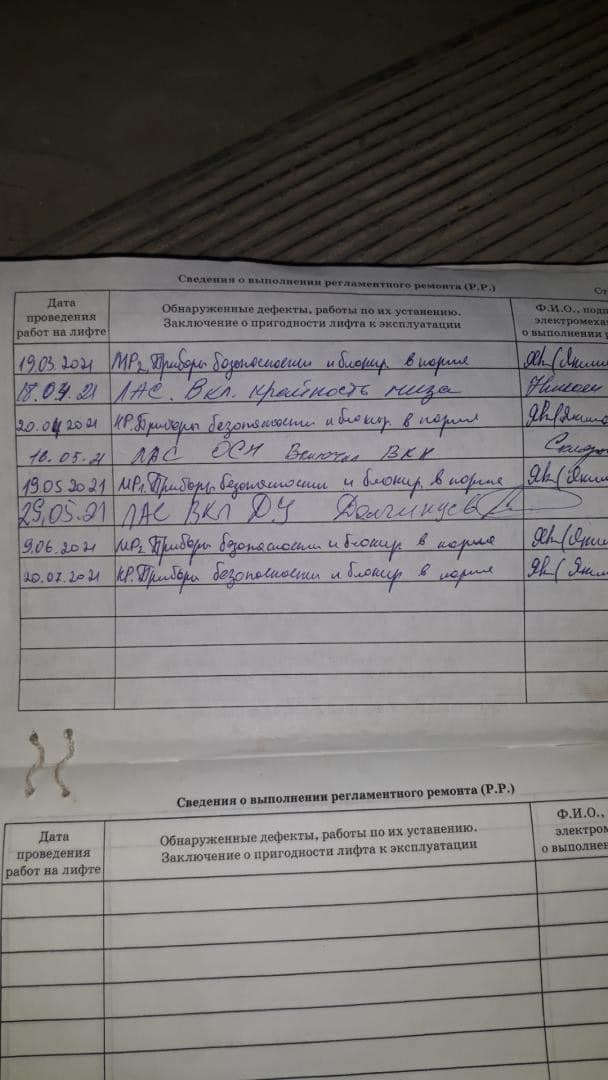 Сведения о выполнении регламентного ремонта (Р.Р.)
Ст
Дата проведения работ на лифте
Обнаруженные дефекты, работы по их устанению. Заключение о пригодности лифта к эксплуатации
Ф.И.О., подп электромеха о выполнении р
19.03.2021 МР2 Приборы безопасности и блокир. в норме
18.04.21 ЛАС. Вкл. крайность низа
20.04.2021 КР. Приборы безопасности и блокир. в норме
16.05.21 ЛАС ОСН Включил ВКН
19.05.2021 МР1 Приборы безопасности и блокир. в норме
29.05.21 ЛАС ВКЛ ДУ
9.06.2021 МР2 Приборы безопасности и блокир в норме
20.07.2021 КР. Приборы безопасности и блокир в норме
Сведения о выполнении регламентного ремонта (Р.Р.)
Дата проведения работ на лифте
Обнаруженные дефекты, работы по их устанению. Заключение о пригодности лифта к эксплуатации
Ф.И.О., электром о выполнен